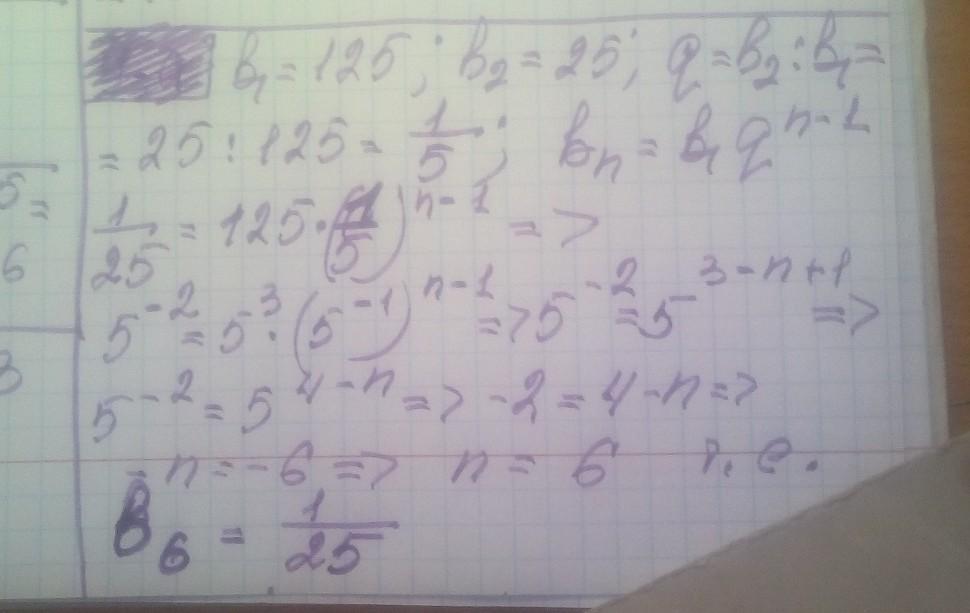 b₁ = 125; b₂ = 25; q = b₂ : b₁ =
= 25 : 125 = 1/5; bₙ = b₁ qⁿ⁻¹
1/25 = 125 · (1/5)ⁿ⁻¹ =>
5⁻² = 5³ · (5⁻¹)ⁿ⁻¹ => 5⁻² = 5³⁻ⁿ⁺¹ =>
5⁻² = 5⁴⁻ⁿ => -2 = 4 - n =>
- n = - 6 => n = 6 т. е.
b₆ = 1/25
5 =
6
3